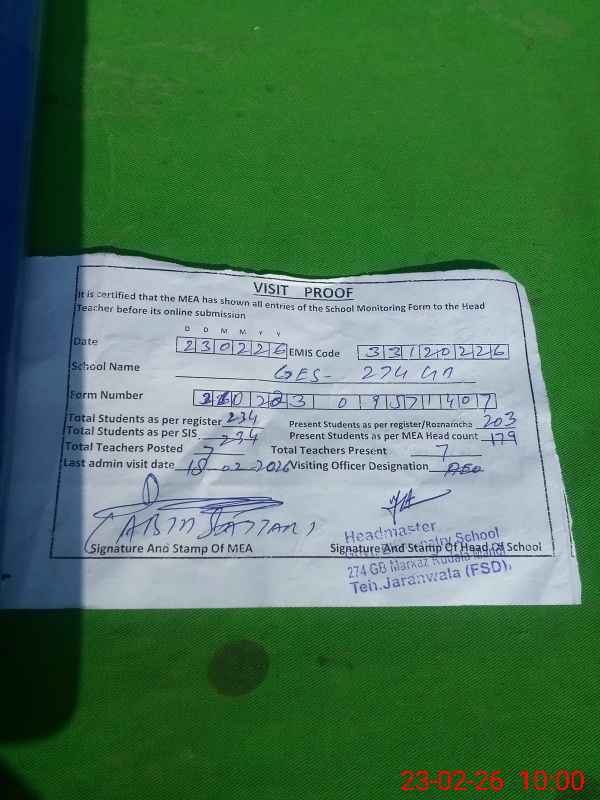 VISIT PROOF
It is certified that the MEA has shown all entries of the School Monitoring Form to the Head
Teacher before its online submission
D D M M Y Y
Date 230226 EMIS Code 33120226
School Name GES- 274 GB
Form Number
Total Students as per register 234 Present Students as per register/Roznamcha 203
Total Students as per SIS 234 Present Students as per MEA Head count 179
Total Teachers Posted 7 Total Teachers Present 7
Last admin visit date 18 02 2026 Visiting Officer Designation AEO
Signature And Stamp Of MEA Signature And Stamp Of Head Of School
Headmaster
School
274 GB Markaz
Teh.Jaranwala (FSD).
23-02-26 10:00